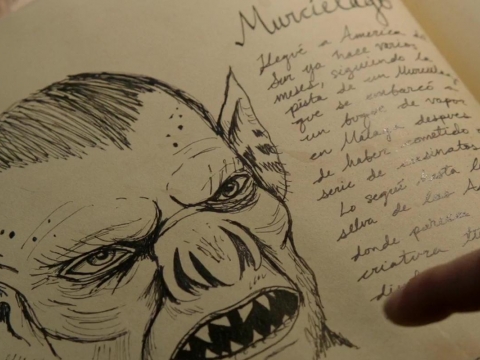 Murcielago
Llegué a America del
Sur ya hace varios
meses, siguiendo la
pista de un Murcielago
que se embarcó a
un buque de vapor
en Málaga despues
de haber cometido
serie de asesinatos
Lo seguí hasta l
selva de las A
donde parecía
criatura